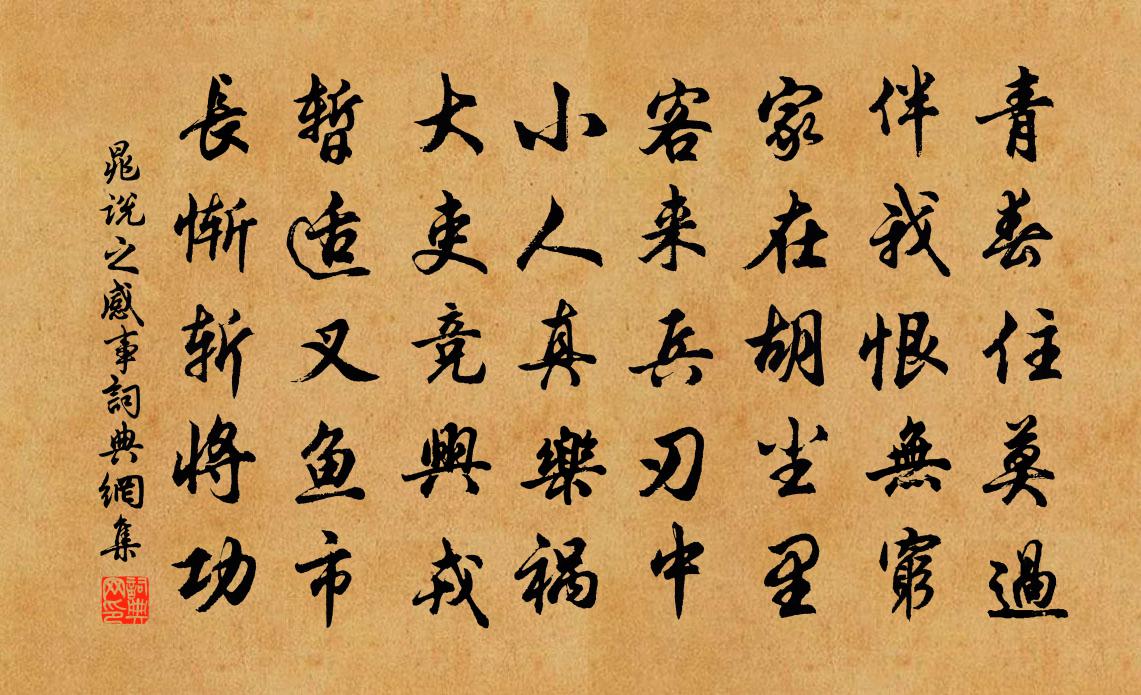 青春住莫過
伴我恨無窮
家在胡尘里
客来兵刃中
小人真樂禍
大吏竞興戎
暫适叉鱼市
長慚斬将功
晁说之感事詞典網集
詞典网印